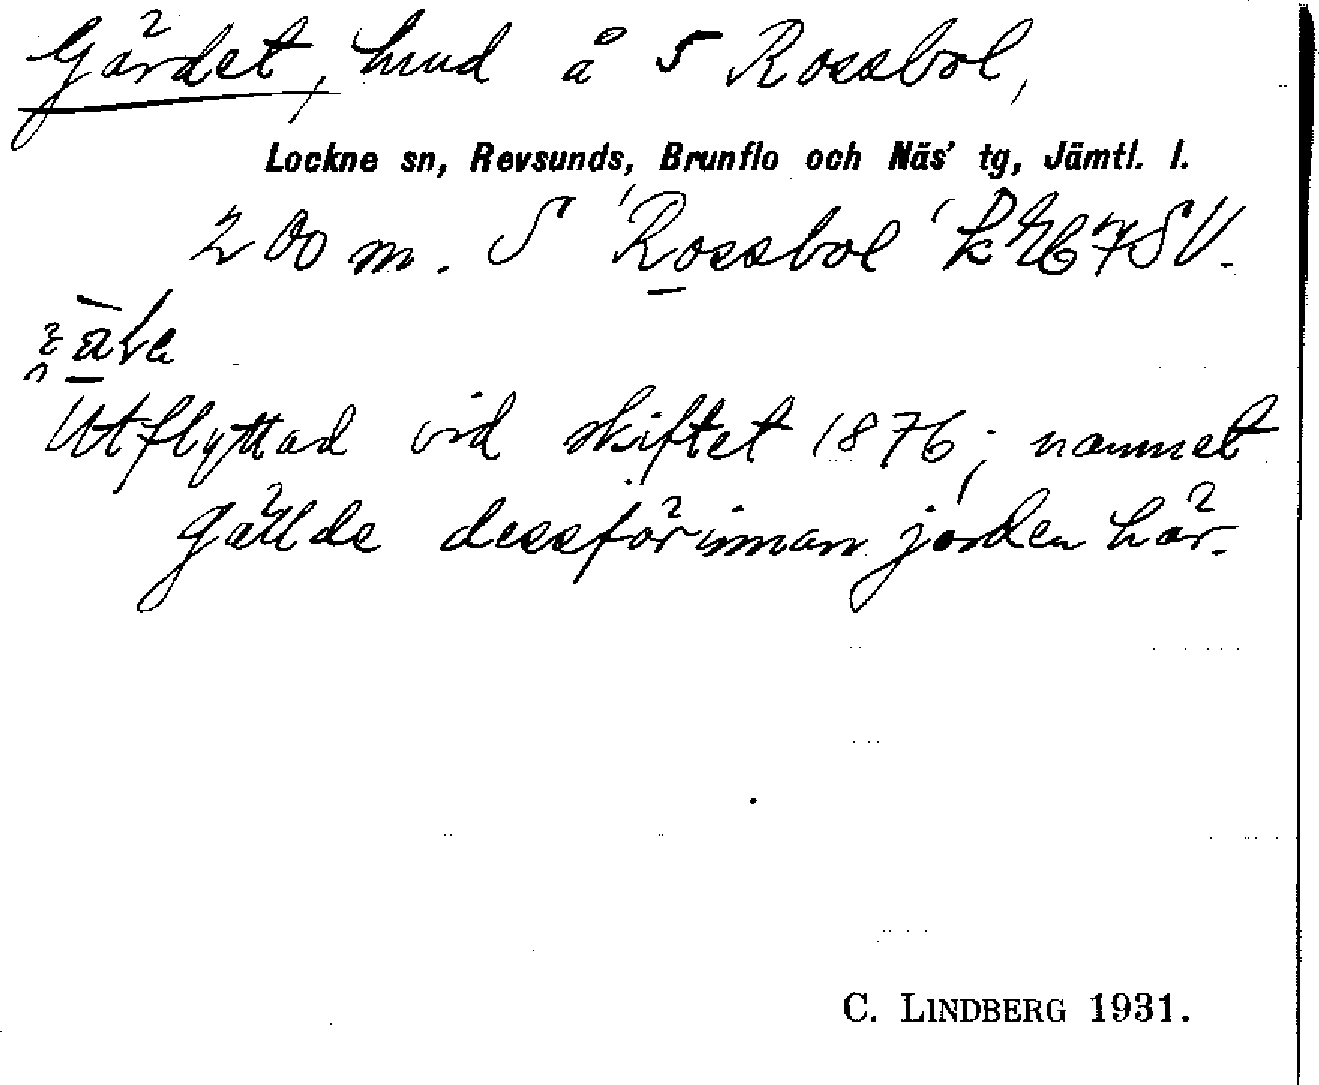 Gärdet, hmd å 5 Rossbol,
Lockne sn, Revsunds, Brunflo och Näs' tg, Jämtl. l.
200 m. S 'Rossbol' k SV.
Utflyttad vid skiftet 1876; namnet
gällde dessförinnan jorden här.
C. LINDBERG 1931.